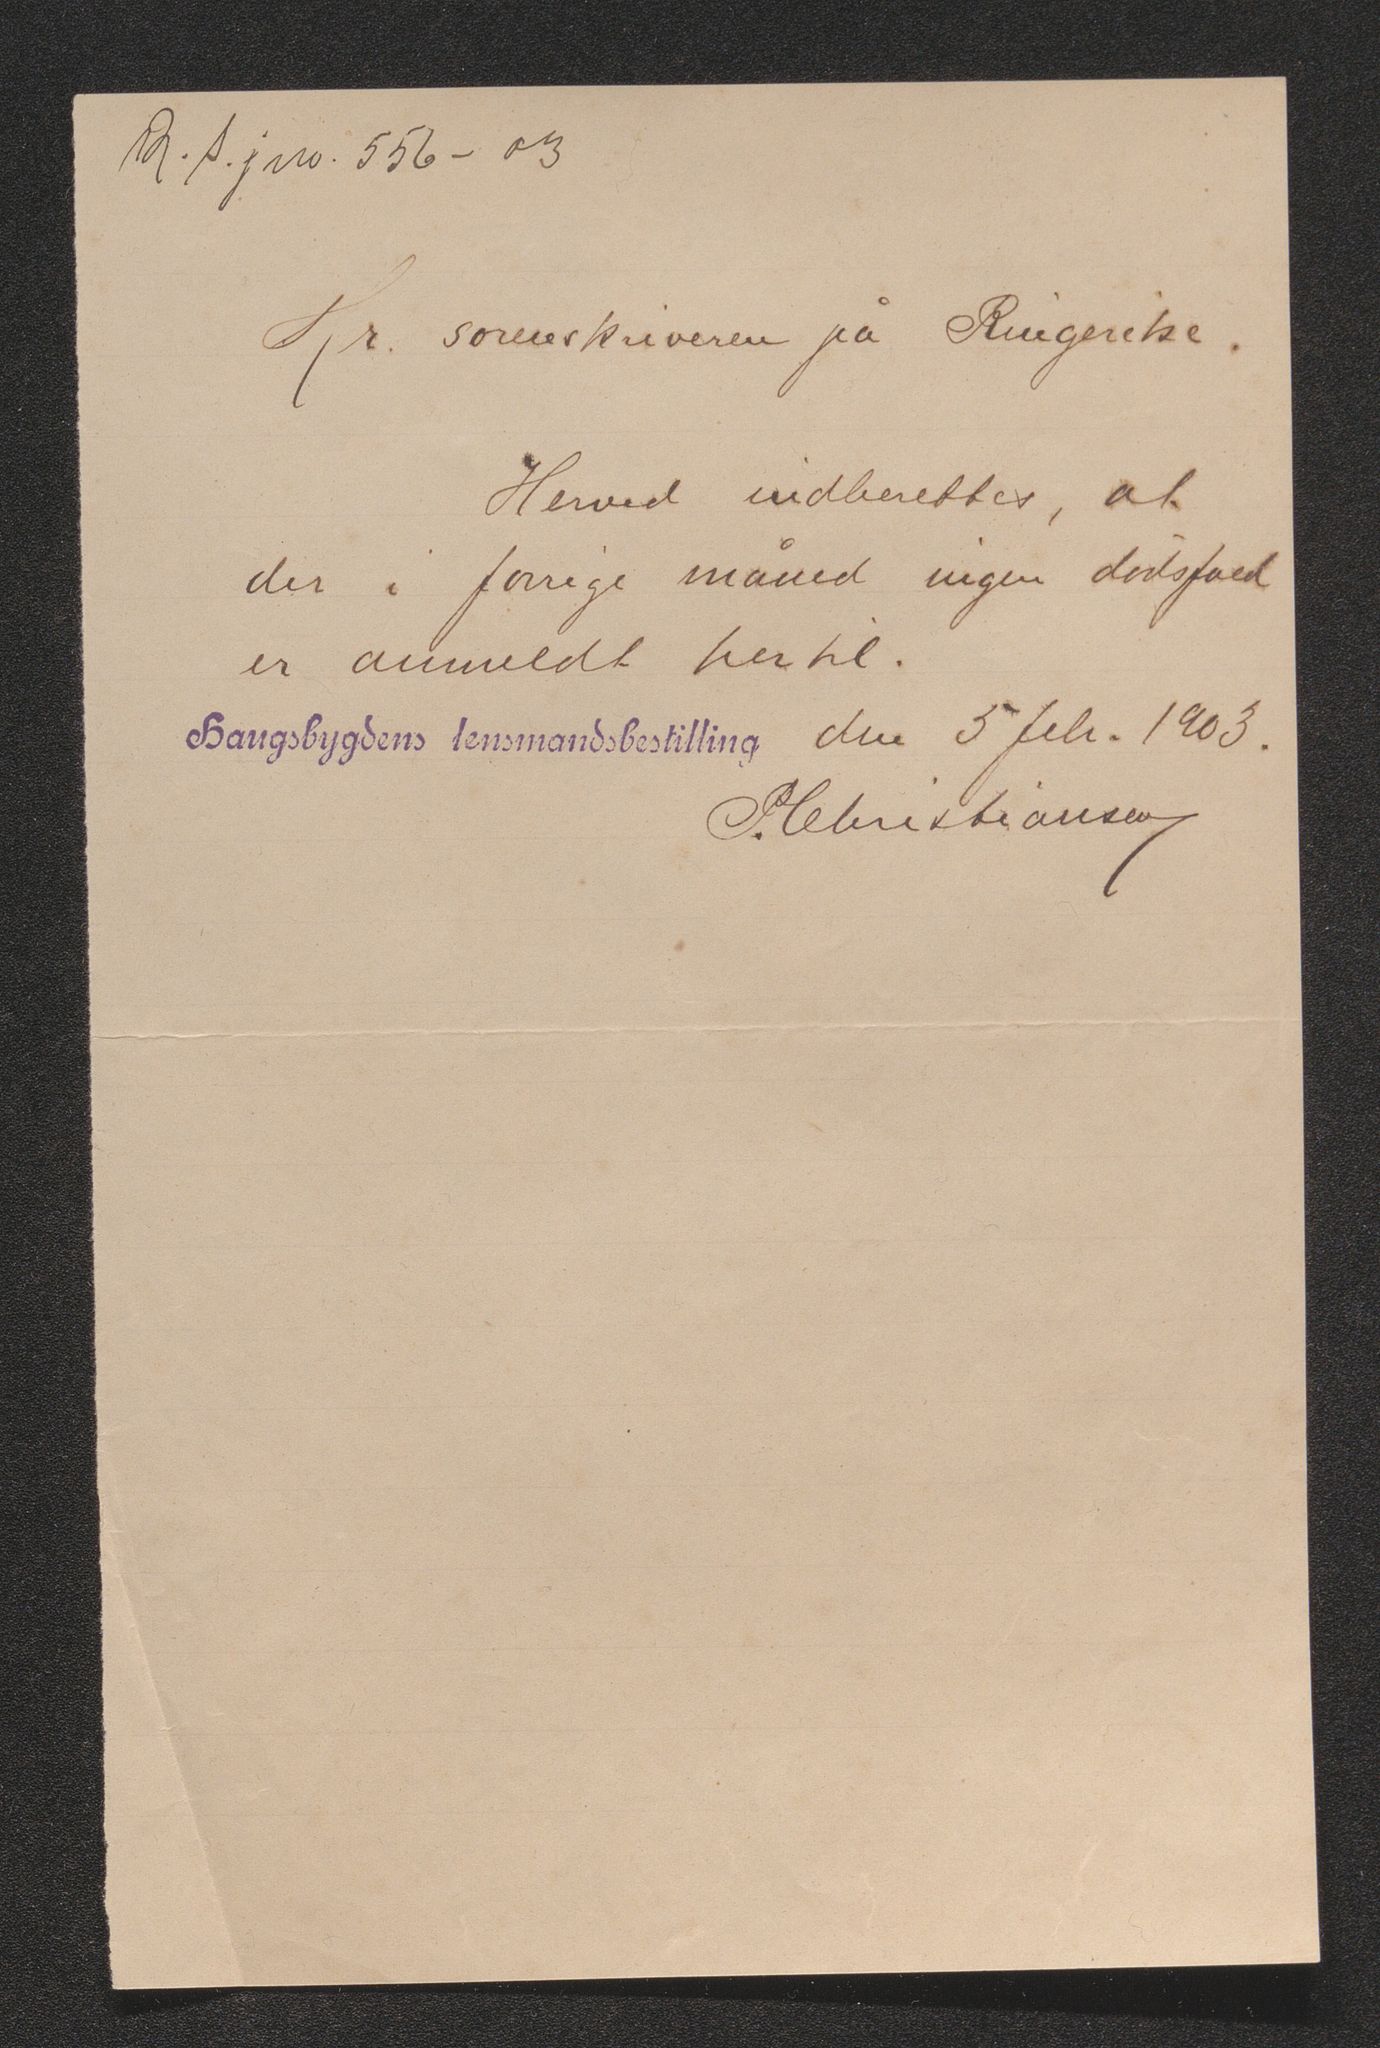 R. s. jno. 556 - 03
Hr. sorenskriveren på Ringerike.
Herved indberettes, at
der i forrige måned ingen dödsfald
er anmeldt hertil.
Haugsbygdens lensmandsbestilling den 5 febr. 1903.
P. Christiansen